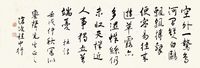 空外一鷙鳥
河間雙白鷗
飄颻搏擊
便容易往來
遊草露亦
多濕蛛絲仍
未收天機近
人事獨立萬
端憂 杜詩
先生